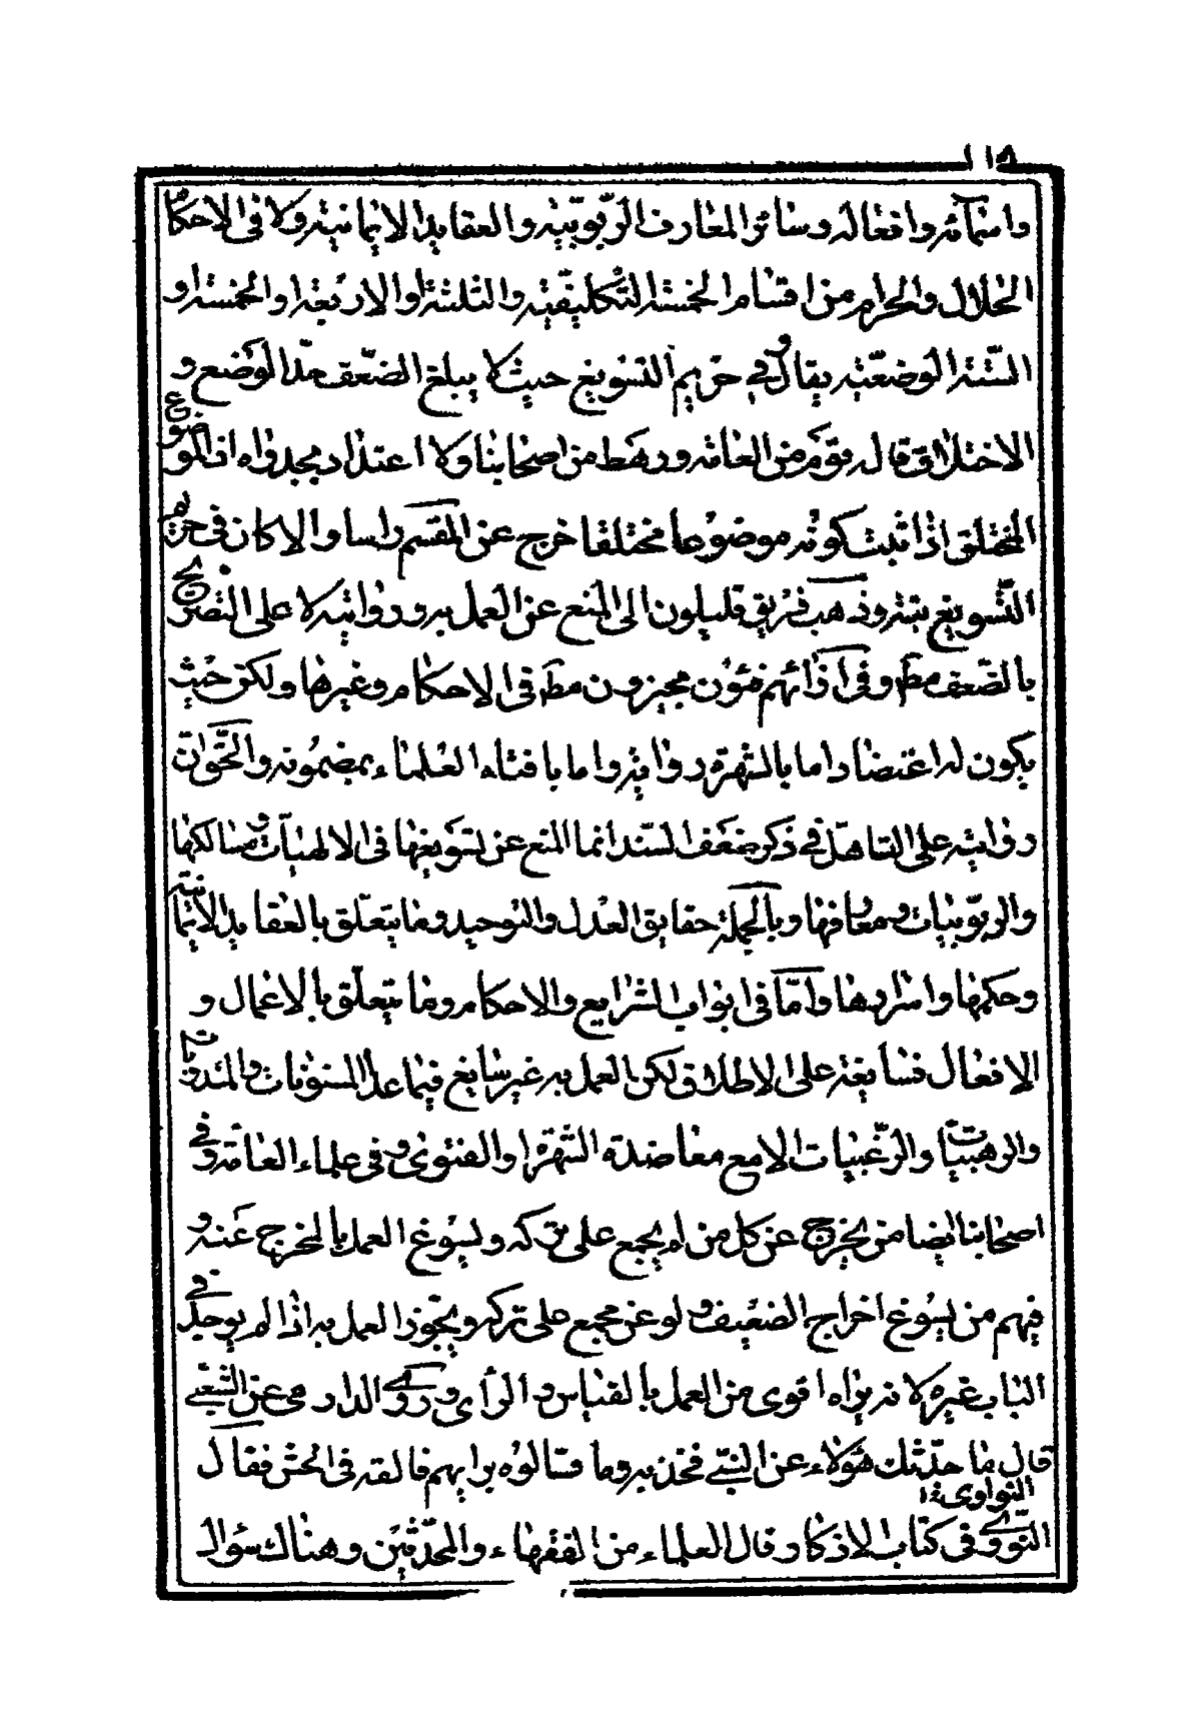 ١١٨
واسمآئه وافعاله وسائر المعارف الربوبيّه والعقايد الايمانيّه ولا فى الاحكام
الحلال والحرام من اقسام الخمسة التكليفيّه والثلثة او الاربعة او الخمسة او
الستة الوضعيّه يقال وفي حريم التسويغ حيث لا يبلغ الضعف حدّ الوضع و
الاختلاق قاله قوم من العامّه ورهط من اصحابنا ولا اعتداد بجدواه اذ الموضوع
المختلق اذا ثبت كونه موضوعا مختلقا خرج عن المقسم راسا والا كان فى حريم
التسويغ بتة وذهب فريق قليلون الى المنع عن العمل به وروايته لا على التصريح
بالضعف مط وفى آرائهم فئون مجيزون مط فى الاحكام وغيرها ولكن حيث
يكون له اعتضاد اما بالشهرة رواية واما بافتاء العلماء بمضمونه والحقّ انّ
روايته على التساهل في ذكر ضعف السند انما المنع عن تسويغها فى الالهيات ومسالكها
والربوبيات ومعارفها وبالجملة حقايق العدل والتوحيد وما يتعلق بالعقايد الايمانية
وحكمها واسرارها وامّا فى ابواب الشرايع والاحكام وما يتعلّق بالاعمال و
الافعال فسايغة على الاطلاق لكن العمل به غير سايغ فيما عدا المسنونات والمندوبات
والرهبيّات والرغبيات الا مع معاضدة الشهرة او الفتوى وفى علماء العامّة وفي
اصحابنا ايضا من يخرج عن كل من لم يجمع على تركه ويسوغ العمل بالمخرج عنه و
فيهم من يسوغ اخراج الضعيف ولو عن مجمع على تركه ويجّوز العمل به اذا لم يوجد في
الباب غيره لانه يراه اقوى من العمل بالقياس والرأى وروى الدارمى عن الشعبي
قال ما حدّثك هؤلاء عن النبيّ فخذ به وما قالوه برايهم فالقه فى الحش فقال
النواوى خ‍ ا
النّووي فى كتاب الاذكار وقال العلماء من الفقهاء والمحدّثين وهناك سؤال